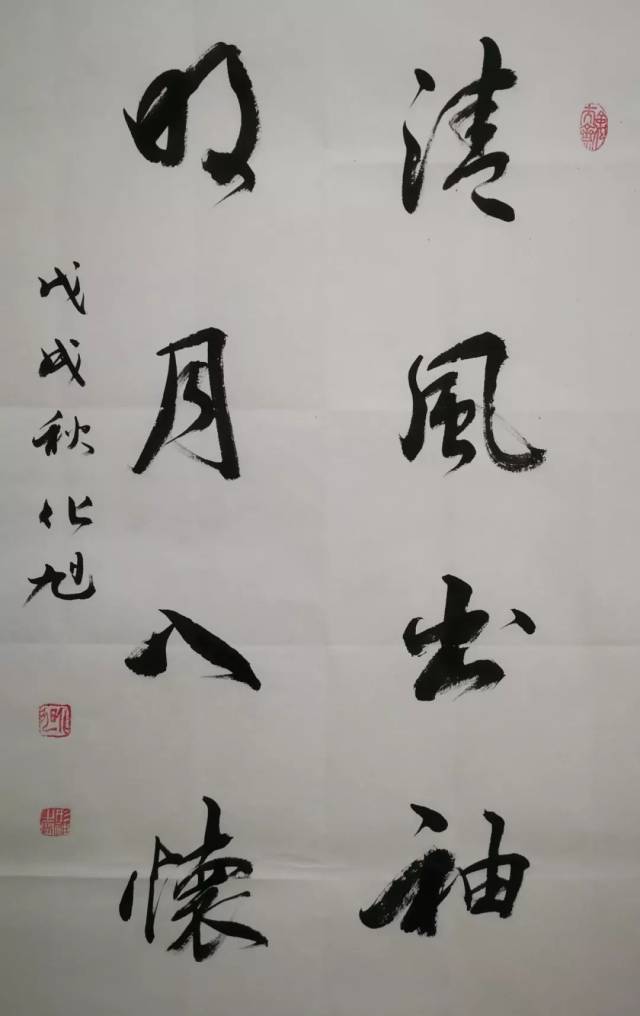 清風出袖
明月入懷
戊戌秋化旭